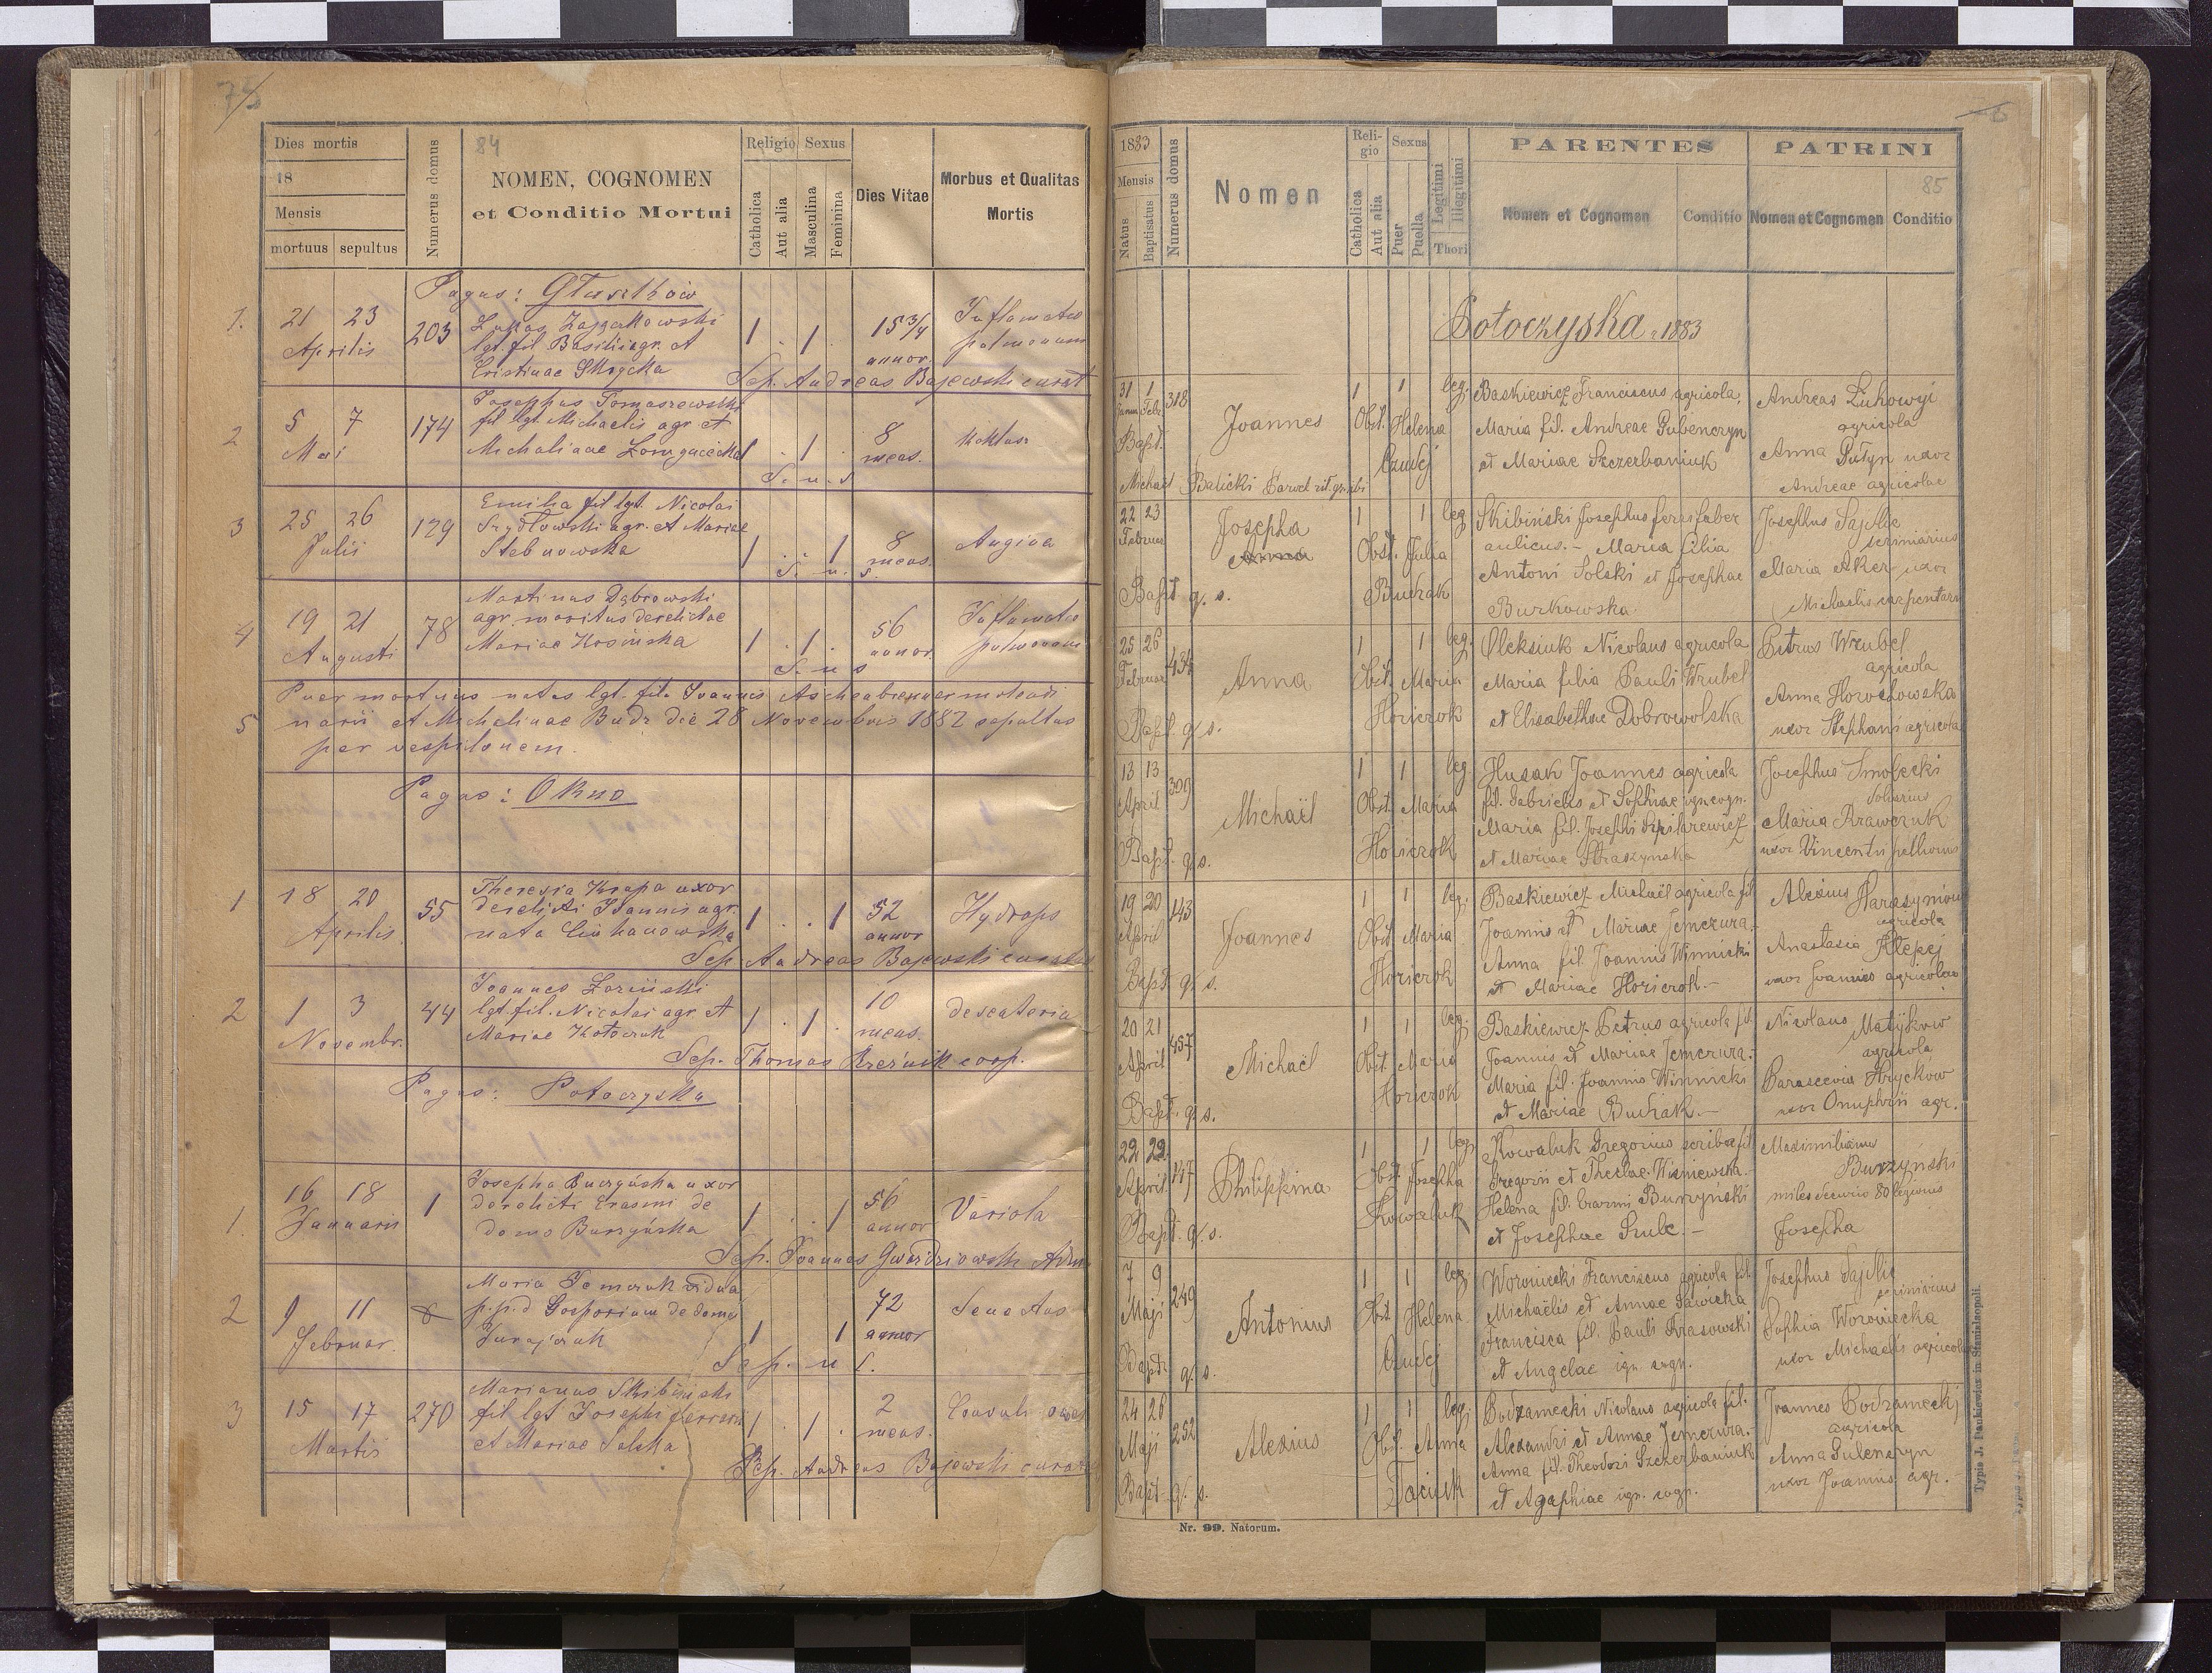 84
Dies mortis
18
Mensis
mortuus sepultus
Numerus domus
NOMEN, COGNOMEN
et Conditio Mortui
Religio Sexus
Catholica
Aut alia
Masculina
Feminina
Dies Vitae
Morbus et Qualitas
Mortis
Pagus:
1. 21 23 Aprilis 203
lgt. fil. Basilii agr. et
15 3/4 annor.
Inflamatio
pulmonum
Sep. Andreas Bajewski curat
2 5 7 Mai 174
Josephus Tomaszewski
fil lgt. Michaelis agr. et
8 meas.
S. u. S
3 25 26 Julii 179
Emilia fil lgt. Nicolai
Szydłowski agr. et Mariae
Stebnowska
8 meas.
Angina
S. u. s.
4 19 21 Augusti 78
Martinus Dąbrowski
agr. maritus derelictae
Mariae Kosińska
56 annor.
Inflamatio
pulmonum
S u s
5 Puer mortuus natus lgt. fil. Joannis
et Michalinae Budz die 28 Novembris 1882 sepultus
per vespilonem.
Pagus: Okno
1 18 20 Aprilis 55
Theresia Krupa uxor
derelicti Joannis agr.
nata
52 annor
Hydrops
Sep. Andreas Bajewski curatus
2 1 3 Novembr. 44
Joannes
lgt. fil. Nicolai agr. et
Mariae
10 meas.
Sep. Thomas coop.
Pagus: Potoczyska
1. 16 18 Januarii 1
Josepha Burzyńska uxor
derelicti Erasmi de
domo Burzyńska
56 annor
Variola
Sep. Joannes Gwoździowski Adm
2 9 11 Februar. 8
Maria vidua
de domo
72 annor
Senectus
Sep. u s.
3 15 17 Martis 270
Marianus Skibiński
fil lgt Josephi ferrarii
et Mariae Solska
2 meas.
Sep. Andreas Bajewski curat
1883
Mensis
Natus
Baptisatus
Numerus domus
Nomen
Religio
Catholica
Aut alia
Sexus
Puer
Puella
Legitimi
Illegitimi
Thori
PARENTES
Nomen et Cognomen Conditio
PATRINI
85
Nomen et Cognomen Conditio
Potoczyska 1883
31 1 318
Joannes
1 1 leg.
Obst. Helena
Czudej
Baskiewicz Franciscus agricola,
Maria fil. Andreae Gubenczyn
et Mariae Szczerbaniuk
Andreas Łukowyi
agricola
Anna Putyn uxor
Andreae agricolae
Bapt.
Michael Balicki
22 23 Februar
Josepha
Anna
1 1 leg
Obst. Julia
Buchak
Skibiński Josephus ferrifaber
aulicus.- Maria filia
Antoni Solski et Josephae
Burkowska
Josephus Sajdlic
scriniarius
Maria Aker uxor
Michaelis carpentarii
Bapt q. s.
25 26 Februar 434
Anna
1 1 leg.
Obst. Maria
Horicrok
Oleksiuk Nicolaus agricola
Maria filia Pauli Wrubel
et Elisabethae Dobrowolska
Petrus Wrubel
agricola
Anna Horochowska
uxor Stephani agricola
Bapt. q. s.
13 13 April 309
Michaël
1 1 leg
Obst. Maria
Horicrok
Husak Joannes agricola
fil. Gabrielis et Sophiae ign. cogn.
Maria fil. Josephi Szpilarewicz
et Mariae Straszynska
Josephus Smolecki
Maria Krawczuk
uxor Vincentii pellionis
Bapt. q. s.
19 20 April 143
Joannes
1 1 leg.
Obst Maria
Horicrok
Baskiewicz Michaël agricola fil
Joannis et Mariae Jemczura.
Anna fil. Joannis Winnicki
et Mariae Horicrok.-
Alexius Harasymów
agricola
Anastasia Klepej
uxor Joannis agricolae
Bapt. q. s.
20 21 April 457
Michaël
1 1 leg.
Obst. Maria
Horicrok
Baskiewicz Petrus agricola fil.
Joannis et Mariae Jemczura.-
Maria fil. Joannis Winnicki
et Mariae Buchak.-
Nicolaus Matijkow
agricola
Parascevia Hryckow
uxor Onuphrii agr.
Bapt. q. s.
22 22 April 147
Philippina
1 1 leg.
Obst. Josepha
Kowaluk
Kowaluk Gregorius scriba fil
Gregorii et Theclae Wisniewska.-
Helena fil. Erasmi Burzyński
et Josephae Szulc.-
Maximilianus
Burzynski
miles 80 legionis
Josepha
Bapt. q. s.
7 9 Maji 249
Antonius
1 1 leg
Obst Helena
Czudej
Woroniecki Franciscus agricola fil.
Michaëlis et Annae Sawicka
Francisca fil. Pauli Krasowski
et Angelae ign. cogn.
Josephus Sajdlic
scriniarius
Sophia Woroniecka
uxor Michaelis agricolae
Bapt. q. s.
24 26 Maji 252
Alexius
1 1 leg.
Obst. Anna
Taciuk
Bodzamecki Nicolaus agricola fil.
Alexandri et Annae Jemczura.
Anna fil. Theodori Szczerbaniuk
et Agaphiae ign. cogn.
Joannes Bodzamecki
agricola
Anna Gulenczyn
uxor Joannis agr.-
Bapt q. s.
Nr. 99. Natorum.
Typis J. Dankiewicz in Stanislaopoli.